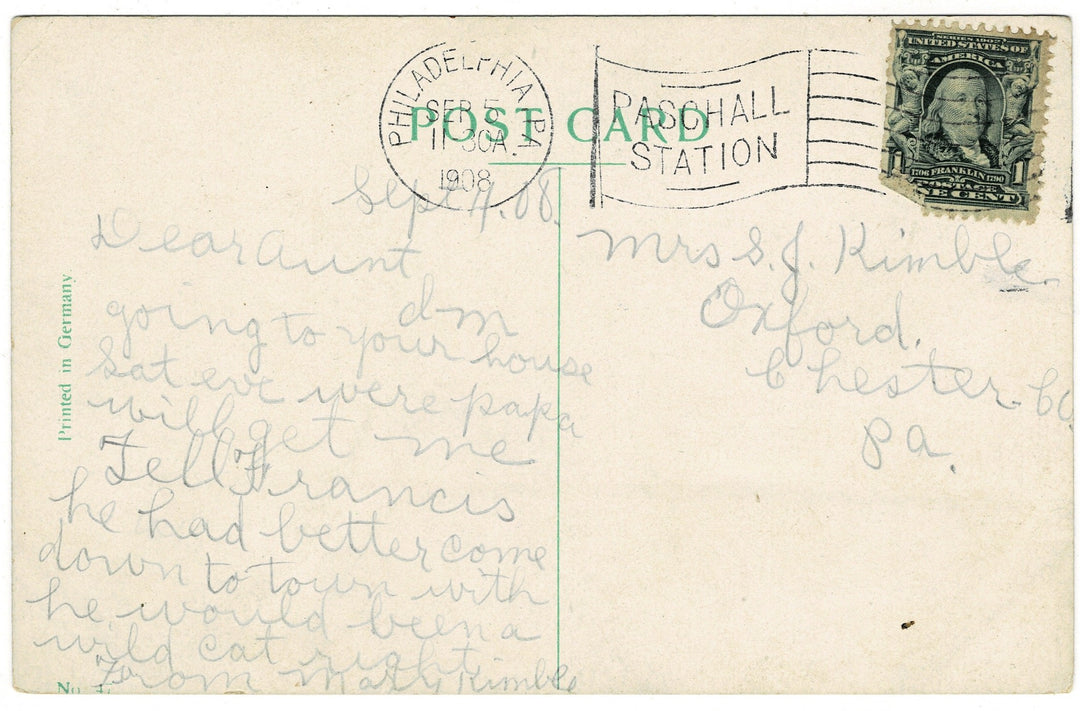 PHILADELPHIA, PA.
SEP 5
11-30A.
1908
PASCHALL
STATION
POST CARD
SERIES 1902
UNITED STATES OF
AMERICA
1 1
1706 FRANKLIN 1790
POSTAGE
ONE CENT
Sept 4. 08.
Dear Aunt
going to your house
Sat eve were papa
will get me
Tell Francis
he had better come
down to town with
he would been a
wild cat right
From Mary Kimble
Mrs S. J. Kimble
Oxford.
Chester Co
Pa.
Printed in Germany
No.